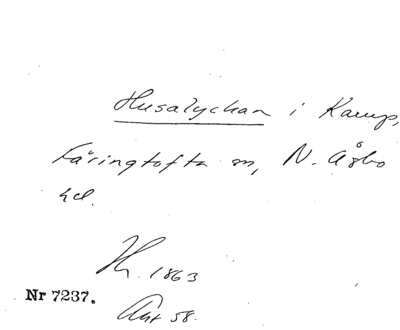 Husalyckan i Karup,
Färingtofta sn, N. Åsbo
hd.
H. 1863
Nr 7237.
Akt 58.